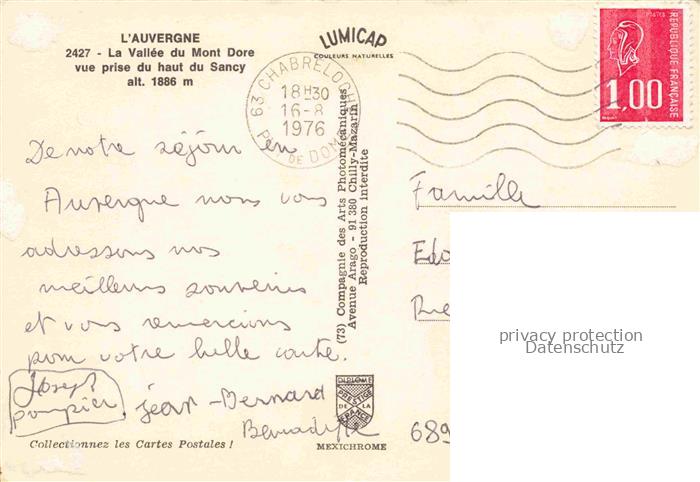 L'AUVERGNE
2427 - La Vallée du Mont Dore
vue prise du haut du Sancy
alt. 1886 m
LUMICAP
COULEURS NATURELLES
63 CHABRELOCHE
18H30
16-8
1976
PUY DE DOME
POSTES
REPUBLIQUE FRANÇAISE
1,00
De notre séjour en
Auvergne nous vous
adressons nos
meilleurs souvenirs
et vous remercions
pour votre belle carte.
Joseph
pompier
Jean-Bernard
Bernadette
(73) Compagnie des Arts Photomécaniques
Avenue Arago - 91380 Chilly-Mazarin
Reproduction interdite
Famille
Edo
Rue
689
privacy protection
Datenschutz
DIPLOME
PRESTIGE
DE LA
FRANCE
MEXICHROME
Collectionnez les Cartes Postales !